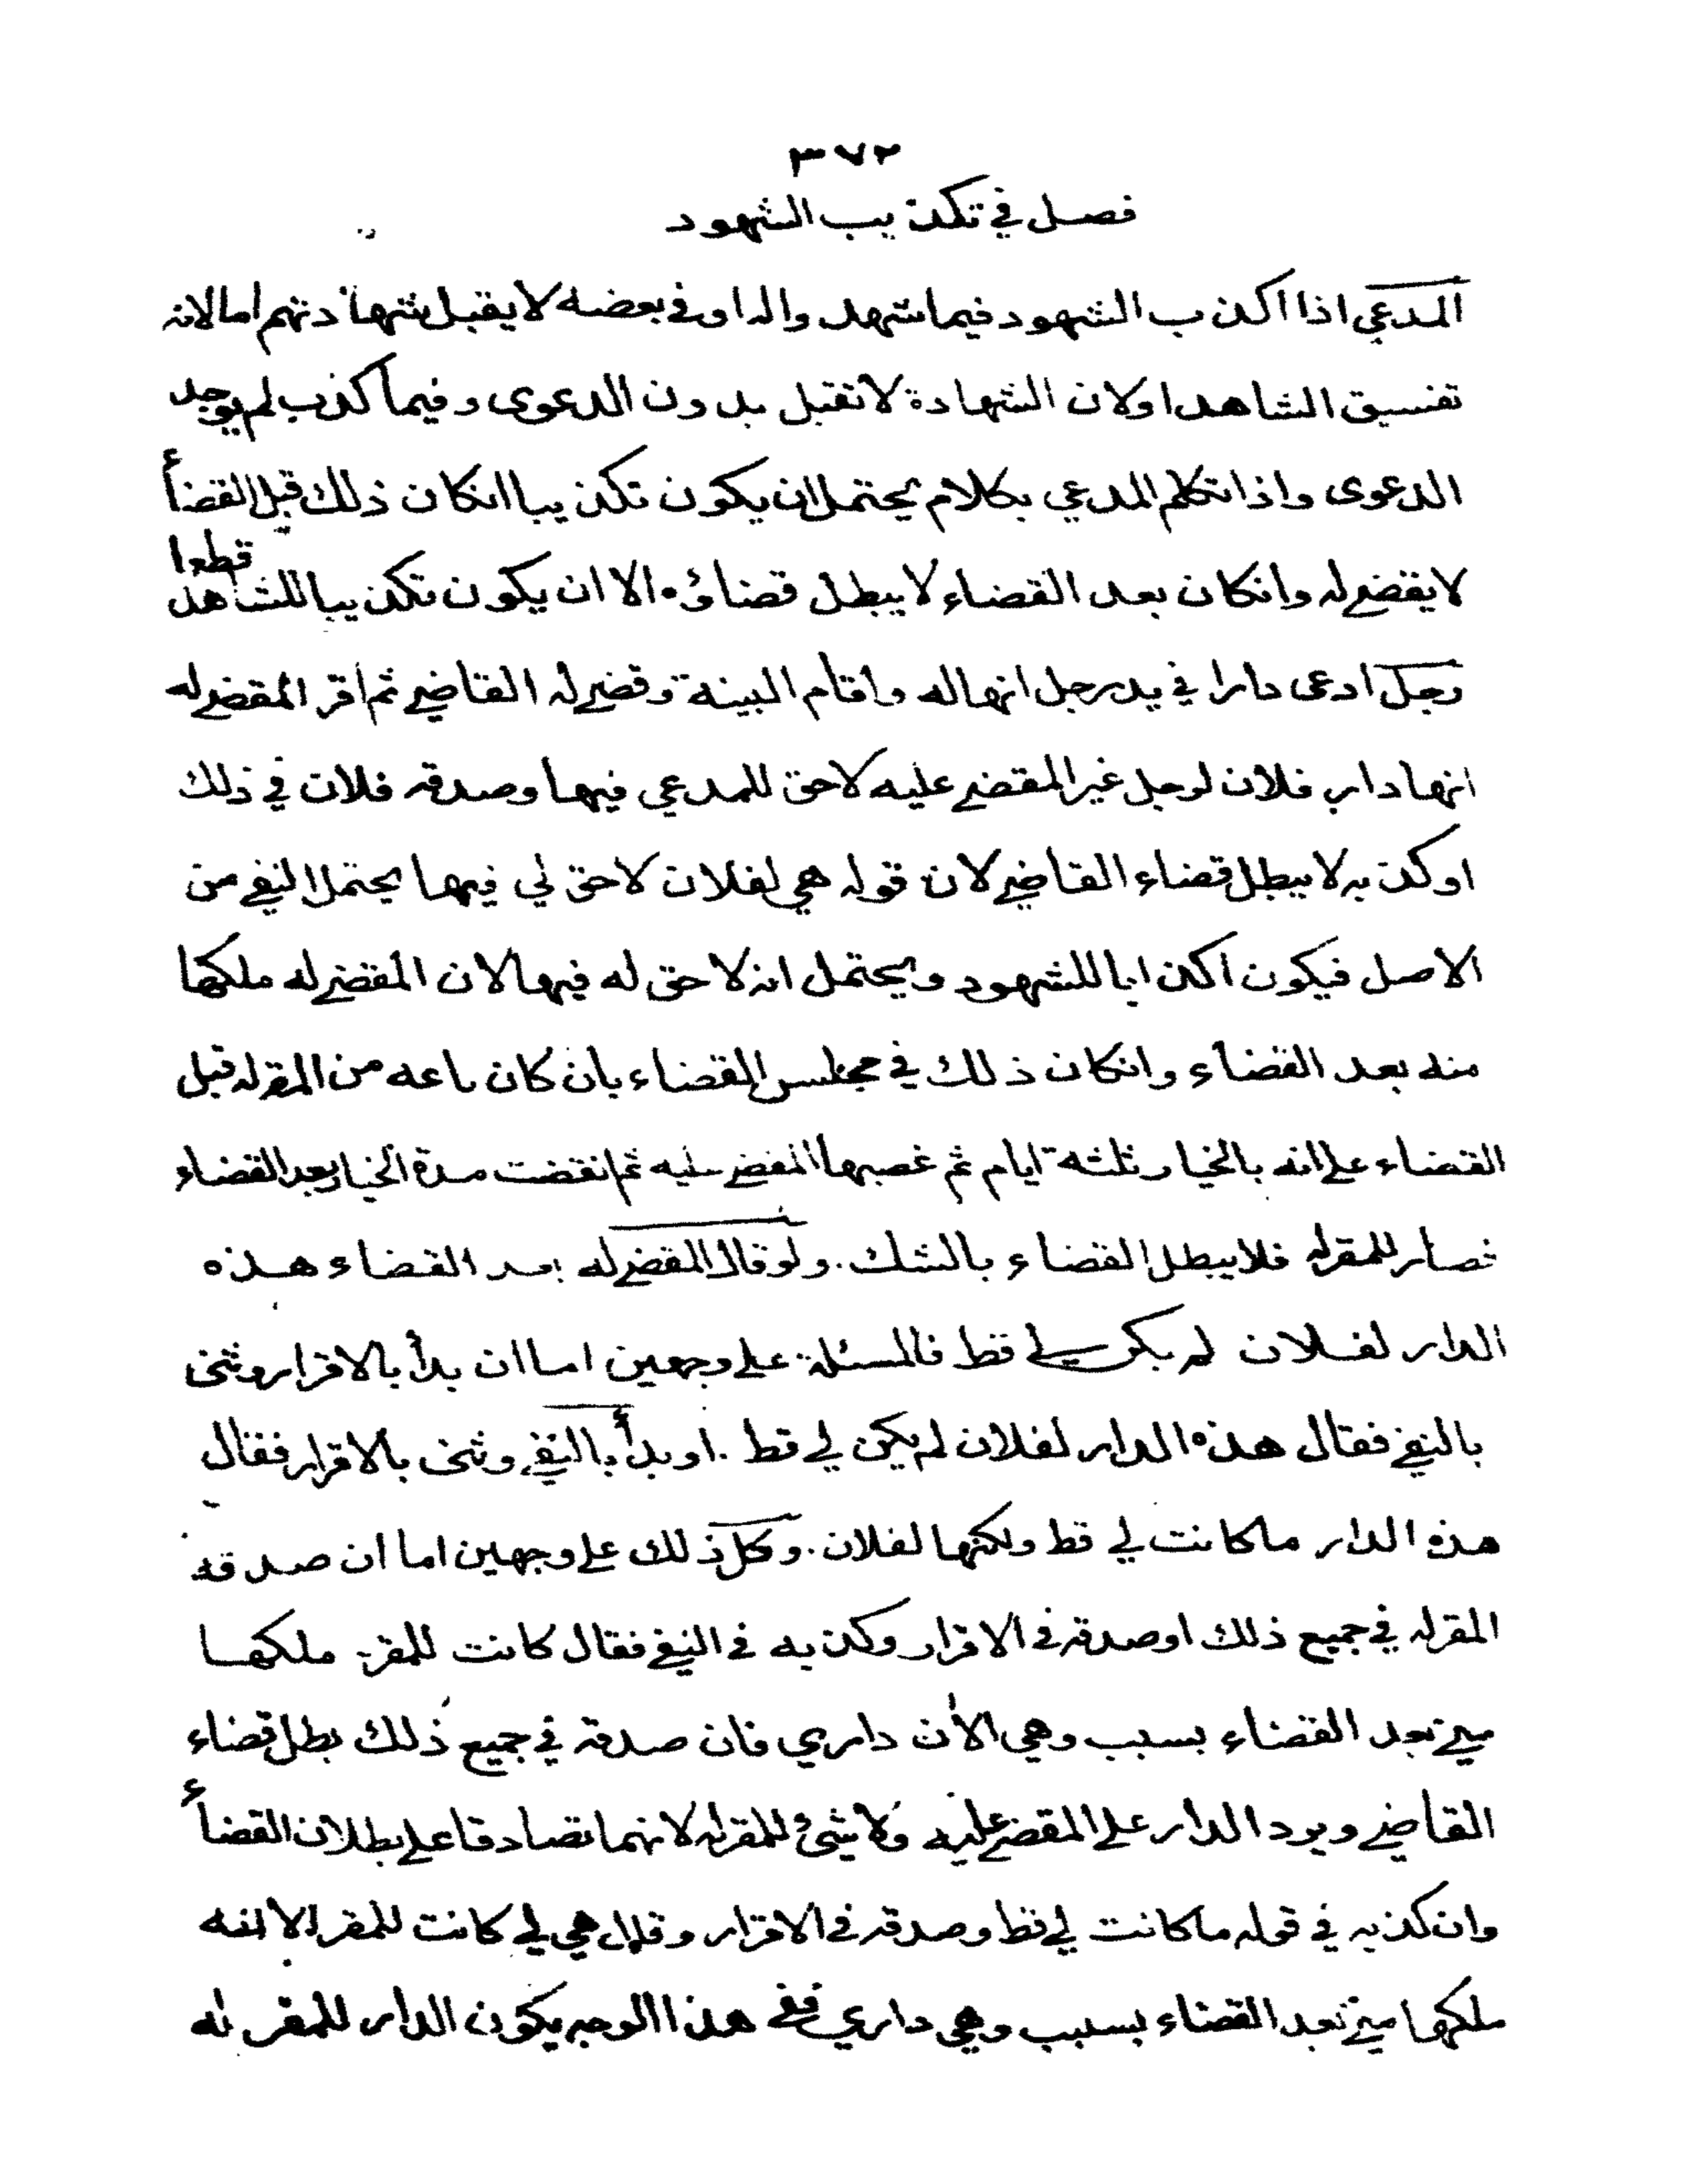 ٣٧٢
فصل في تكذيب الشهود
المدعي اذا اكذب الشهود فيما شهدوا له او في بعضه لا يقبل شهادتهم اما لانه
تفسيق الشاهد او لان الشهادة لا تقبل بدون الدعوى وفيما اكذب لم يوجد
الدعوى واذا تكلم المدعي بكلام يحتمل ان يكون تكذيبا انكان ذلك قبل القضأ
لا يقضے له وانكان بعد القضاء لا يبطل قضاؤه الا ان يكون تكذيبا للشاهد قطعا
رجل ادعى دارا في يد رجل انها له واقام البينة وقضے له القاضے ثم اقر المقضے له
انها دار فلان لرجل غير المقضے عليه لا حق للمدعي فيها وصدقه فلان في ذلك
او كذبه لا يبطل قضاء القاضے لان قوله هي لفلان لا حق لي فيها يحتمل النفے من
الاصل فيكون اكذابا للشهود ويحتمل انه لا حق له فيها لان المقضے له ملكها
منه بعد القضاء وانكان ذلك في مجلس القضاء بان كان باعه من المقر له قبل
القضاء على انه بالخيار ثلثة ايام ثم غصبها المقضے عليه ثم انقضت مدة الخيار بعد القضاء
فصار للمقر له فلا يبطل القضاء بالشك . ولو قال المقضے له بعد القضاء هذه
الدار لفلان لم يكن لي قط فالمسئلة على وجهين اما ان بدأ بالاقرار وثنى
بالنفے فقال هذه الدار لفلان لم يكن لي قط . او بدأ بالنفے وثنى بالاقرار فقال
هذه الدار ما كانت لي قط ولكنها لفلان . وكل ذلك على وجهين اما ان صدقه
المقر له في جميع ذلك او صدقه في الاقرار وكذبه في النفے فقال كانت للمقر ملكها
منے بعد القضاء بسبب وهي الآن داري فان صدقه في جميع ذلك بطل قضاء
القاضے ويرد الدار على المقضے عليه ولا شئ للمقر له لانهما تصادقا على بطلان القضأ
وان كذبه في قوله ما كانت لي قط وصدقه في الاقرار وقال هي لي كانت للمقر لانه
ملكها منے بعد القضاء بسبب وهي داري ففے هذا الوجه يكون الدار للمقر له